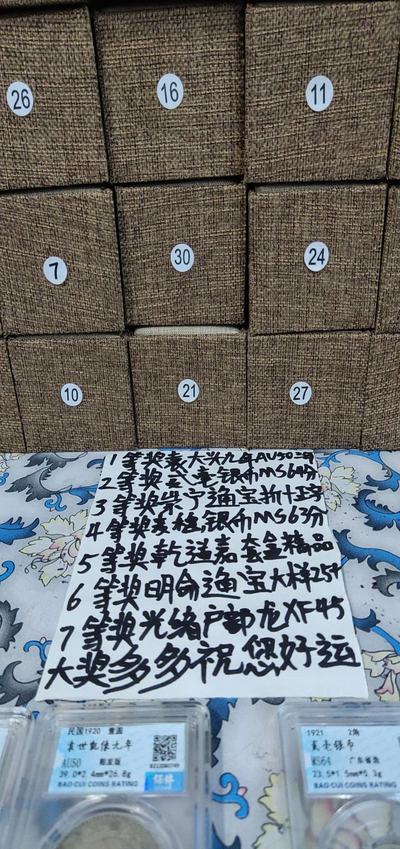 26
16
11
7
30
24
10
21
27
1等奖袁大头九年AU50
2等奖贰毫银币MS64分
3等奖崇宁通宝折十
4等奖麦穗银币MS63分
5等奖乾道嘉套盒精品
6等奖明命通宝大样25
7等奖光绪户部龙XF45
大奖多多祝您好运
民国1920 壹圆
袁世凯像九年
AU50
39.0*2.4mm*26.8g
BAO CUI COINS RATING
1921 2角
贰毫银币
MS64 广东省造
23.5*1.5mm*5.3g
BAO CUI COINS RATING